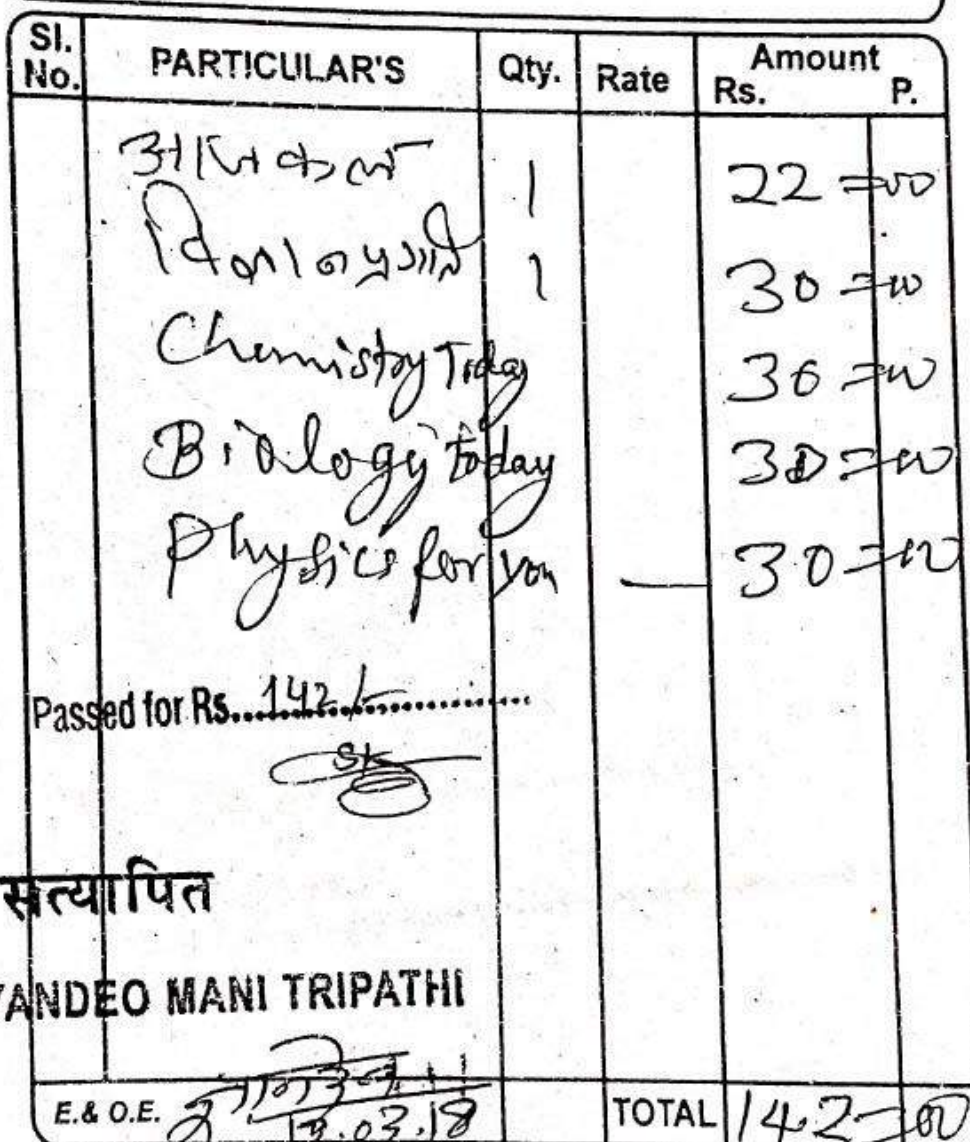 Sl. No. PARTICULAR'S Qty. Rate Amount Rs. P.
आजकल 1 22=00
विज्ञान प्रगति 1 30=00
Chemistry Today 30=00
Biology today 30=00
Physics for you — 30=00
Passed for Rs. 142/-
सत्यापित
YANDEO MANI TRIPATHI
E.& O.E. .03.18 TOTAL 142=00